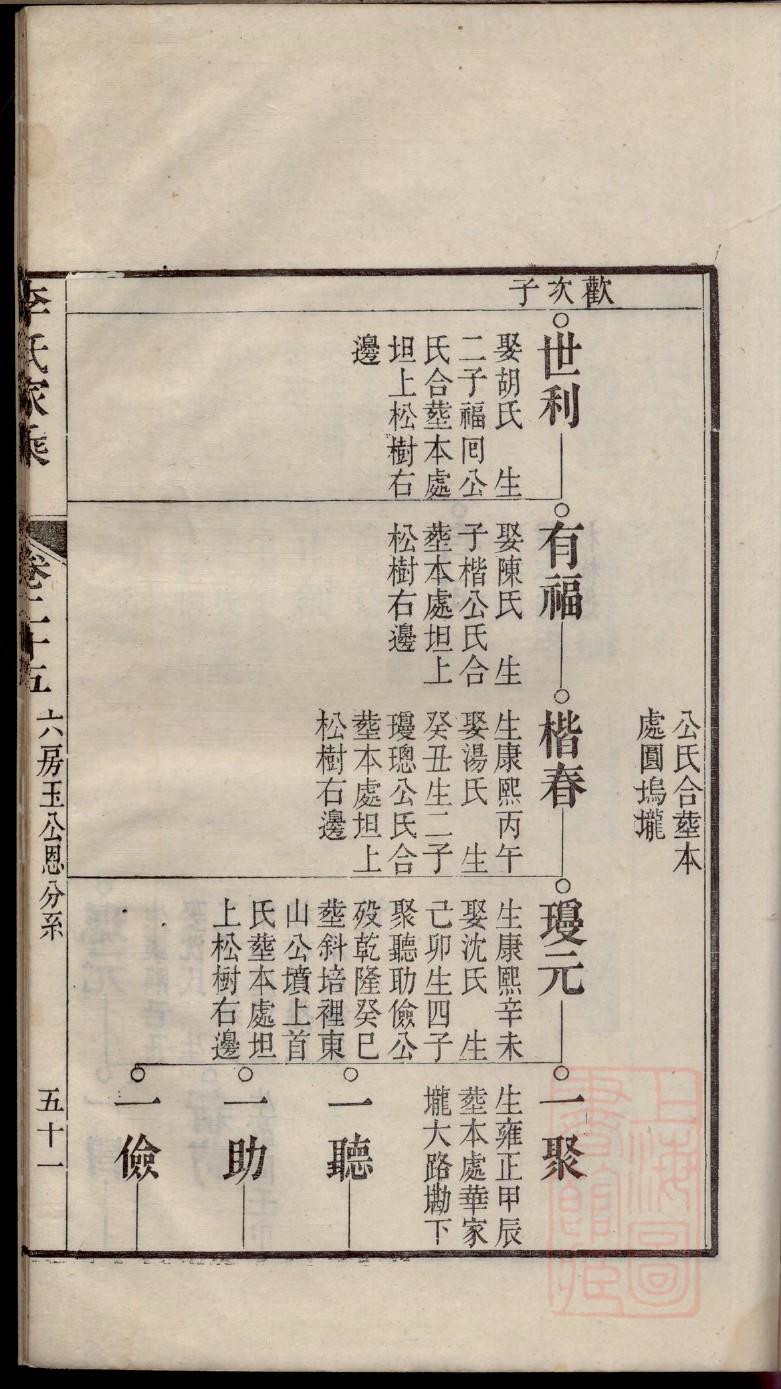 公氏合塟本
處圓塢壠
歡次子
世利
娶胡氏　生
二子福囘公
氏合塟本處
坦上松樹右
邊
有福
娶陳氏　生
子楷公氏合
塟本處坦上
松樹右邊
楷春
生康熙丙午
娶湯氏　生
癸丑生二子
璦璁公氏合
塟本處坦上
松樹右邊
璦元
生康熙辛未
娶沈氏　生
己卯生四子
聚聽助儉公
歿乾隆癸巳
塟斜培裡東
山公墳上首
氏塟本處坦
上松樹右邊
一聚
生雍正甲辰
塟本處華家
壠大路墈下
一聽
一助
一儉
李氏家乘
卷二十五
六房玉公恩分系
五十一
上海圖
書館藏